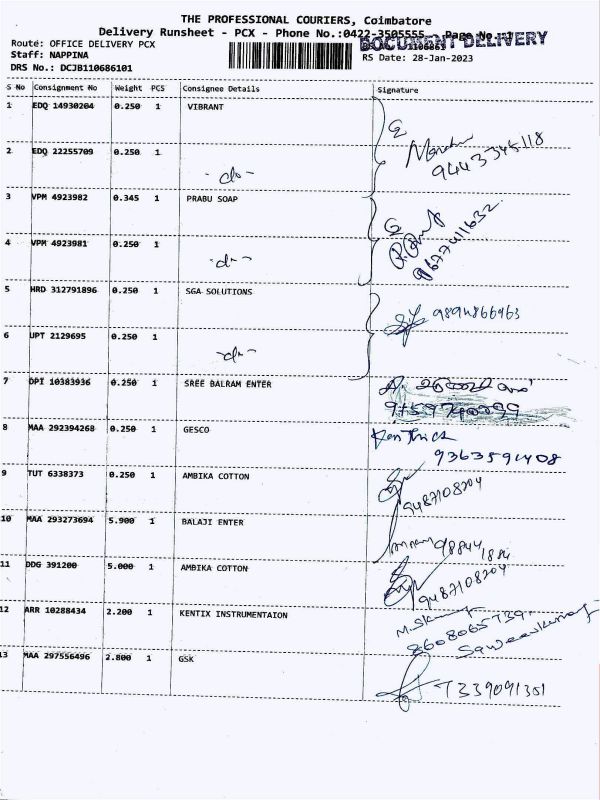 THE PROFESSIONAL COURIERS, Coimbatore
Delivery Runsheet - PCX - Phone No.:0422-3505555 Page No.:1
DOCUMENT DELIVERY
Route: OFFICE DELIVERY PCX
Staff: NAPPINA
RS Date: 28-Jan-2023
DRS No.: DCJB110686101
S No Consignment No Weight PCS Consignee Details Signature
1 EDQ 14930204 0.250 1 VIBRANT
2 EDQ 22255709 0.250 1 -do-
9443345118
3 VPM 4923982 0.345 1 PRABU SOAP
4 VPM 4923981 0.250 1 -do-
9677411632
5 HRD 312791896 0.250 1 SGA SOLUTIONS
9894866963
6 UPT 2129695 0.250 1 -do-
7 DPI 10383936 0.250 1 SREE BALRAM ENTER
8 MAA 292394268 0.250 1 GESCO
9363591408
9 TUT 6338373 0.250 1 AMBIKA COTTON
9487108204
10 MAA 293273694 5.900 1 BALAJI ENTER
11 DDG 391200 5.000 1 AMBIKA COTTON
9487108204
12 ARR 10288434 2.200 1 KENTIX INSTRUMENTAION
13 MAA 297556496 2.800 1 GSK
7339091301